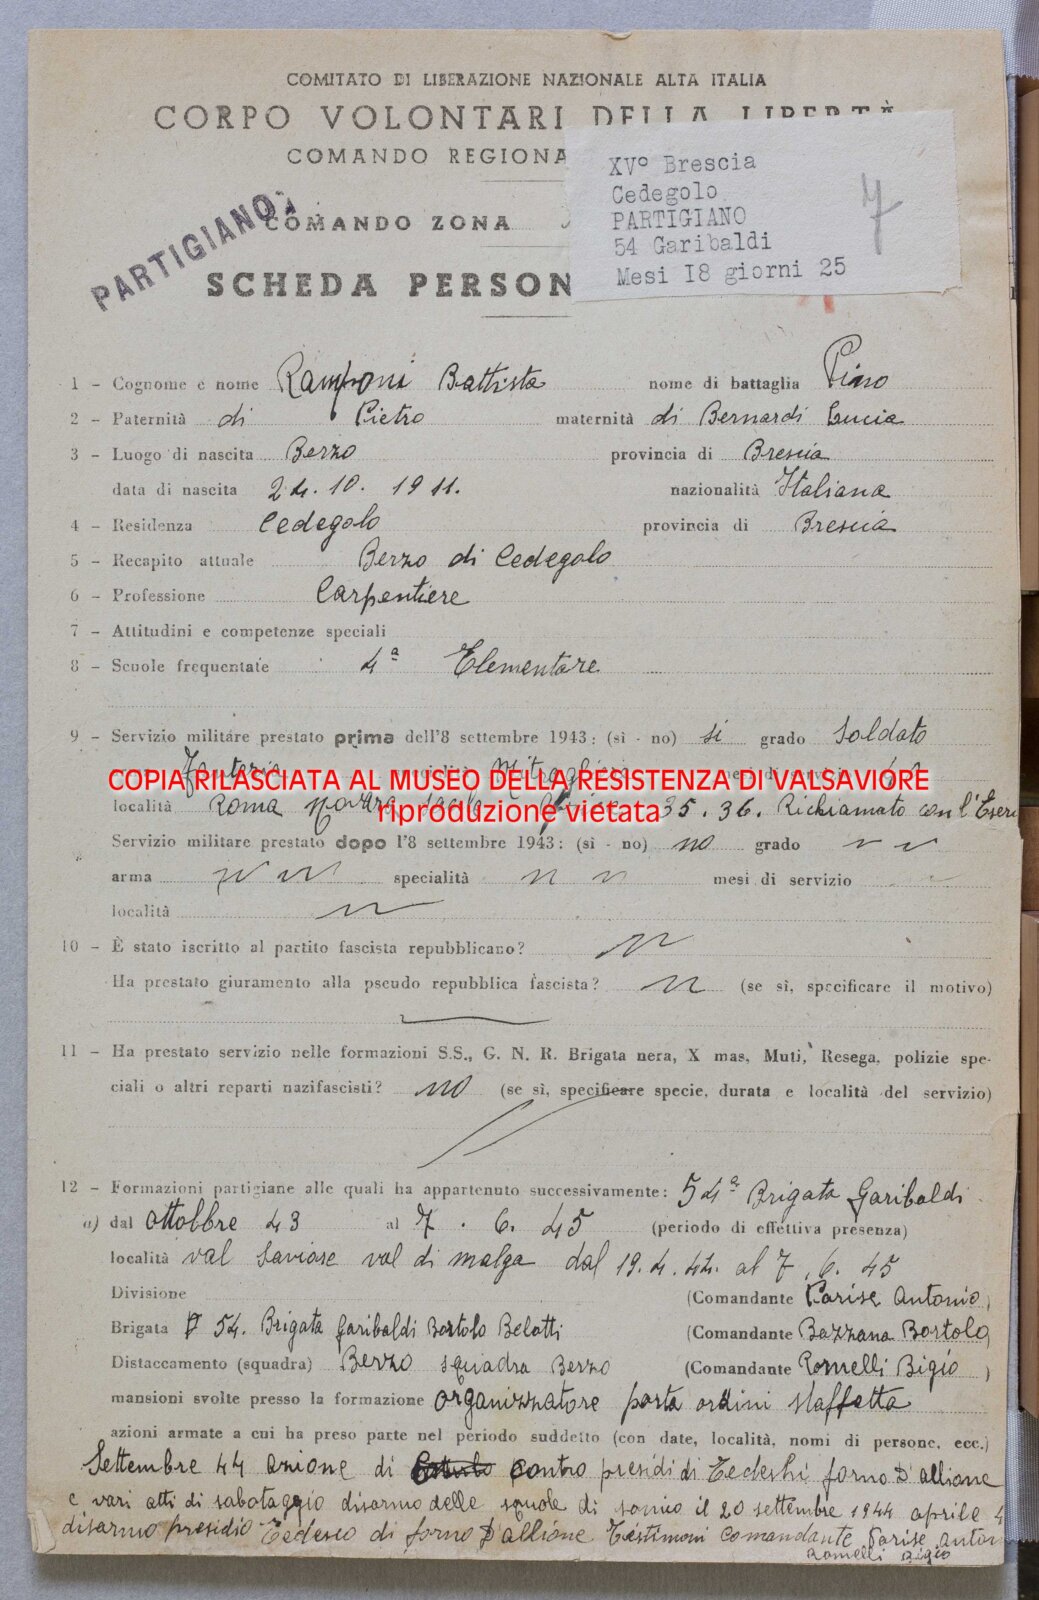 COMITATO DI LIBERAZIONE NAZIONALE ALTA ITALIA
CORPO VOLONTARI DELLA LIBERTÀ
COMANDO REGIONA
XVº Brescia
Cedegolo
PARTIGIANO
54 Garibaldi
Mesi I8 giorni 25
7
PARTIGIANO
COMANDO ZONA
SCHEDA PERSON
1 - Cognome e nome Ramponi Battista nome di battaglia Pino
2 - Paternità di Pietro maternità di Bernardi Lucia
3 - Luogo di nascita Berzo provincia di Brescia
data di nascita 24.10.1911. nazionalità Italiana
4 - Residenza Cedegolo provincia di Brescia
5 - Recapito attuale Berzo di Cedegolo
6 - Professione Carpentiere
7 - Attitudini e competenze speciali
8 - Scuole frequentate 4ª Elementare
9 - Servizio militare prestato prima dell'8 settembre 1943: (sì - no) si grado Soldato
Fanteria
COPIA RILASCIATA AL MUSEO DELLA RESISTENZA DI VALSAVIORE
località Roma 35.36. Richiamato con l'Eser
riproduzione vietata
Servizio militare prestato dopo l'8 settembre 1943: (sì - no) no grado
arma specialità mesi di servizio
località
10 - È stato iscritto al partito fascista repubblicano?
Ha prestato giuramento alla pseudo repubblica fascista? (se sì, specificare il motivo)
11 - Ha prestato servizio nelle formazioni S.S., G. N. R. Brigata nera, X mas, Muti, Resega, polizie spe-
ciali o altri reparti nazifascisti? no (se sì, specificare specie, durata e località del servizio)
12 - Formazioni partigiane alle quali ha appartenuto successivamente: 54ª Brigata Garibaldi
a) dal ottobre 43 al 7.6.45 (periodo di effettiva presenza)
località val Saviore val di malga dal 19.4.44. al 7.6.45
Divisione (Comandante Parise Antonio)
Brigata 54. Brigata Garibaldi Bortolo Belotti (Comandante Bazzana Bortolo
Distaccamento (squadra) Berzo squadra Berzo (Comandante Romelli Bigio )
mansioni svolte presso la formazione organizzatore porta ordini staffetta
azioni armate a cui ha preso parte nel periodo suddetto (con date, località, nomi di persone, ecc.)
Settembre 44 azione di contro presidi di Tedeshi forno D'allione
e vari atti di sabotaggio disarmo delle squole di sonico il 20 settembre 1944 aprile 4
disarmo presidio Tedesco di forno D'allione Testimoni Comandante Parise Anton
Romelli Bigio